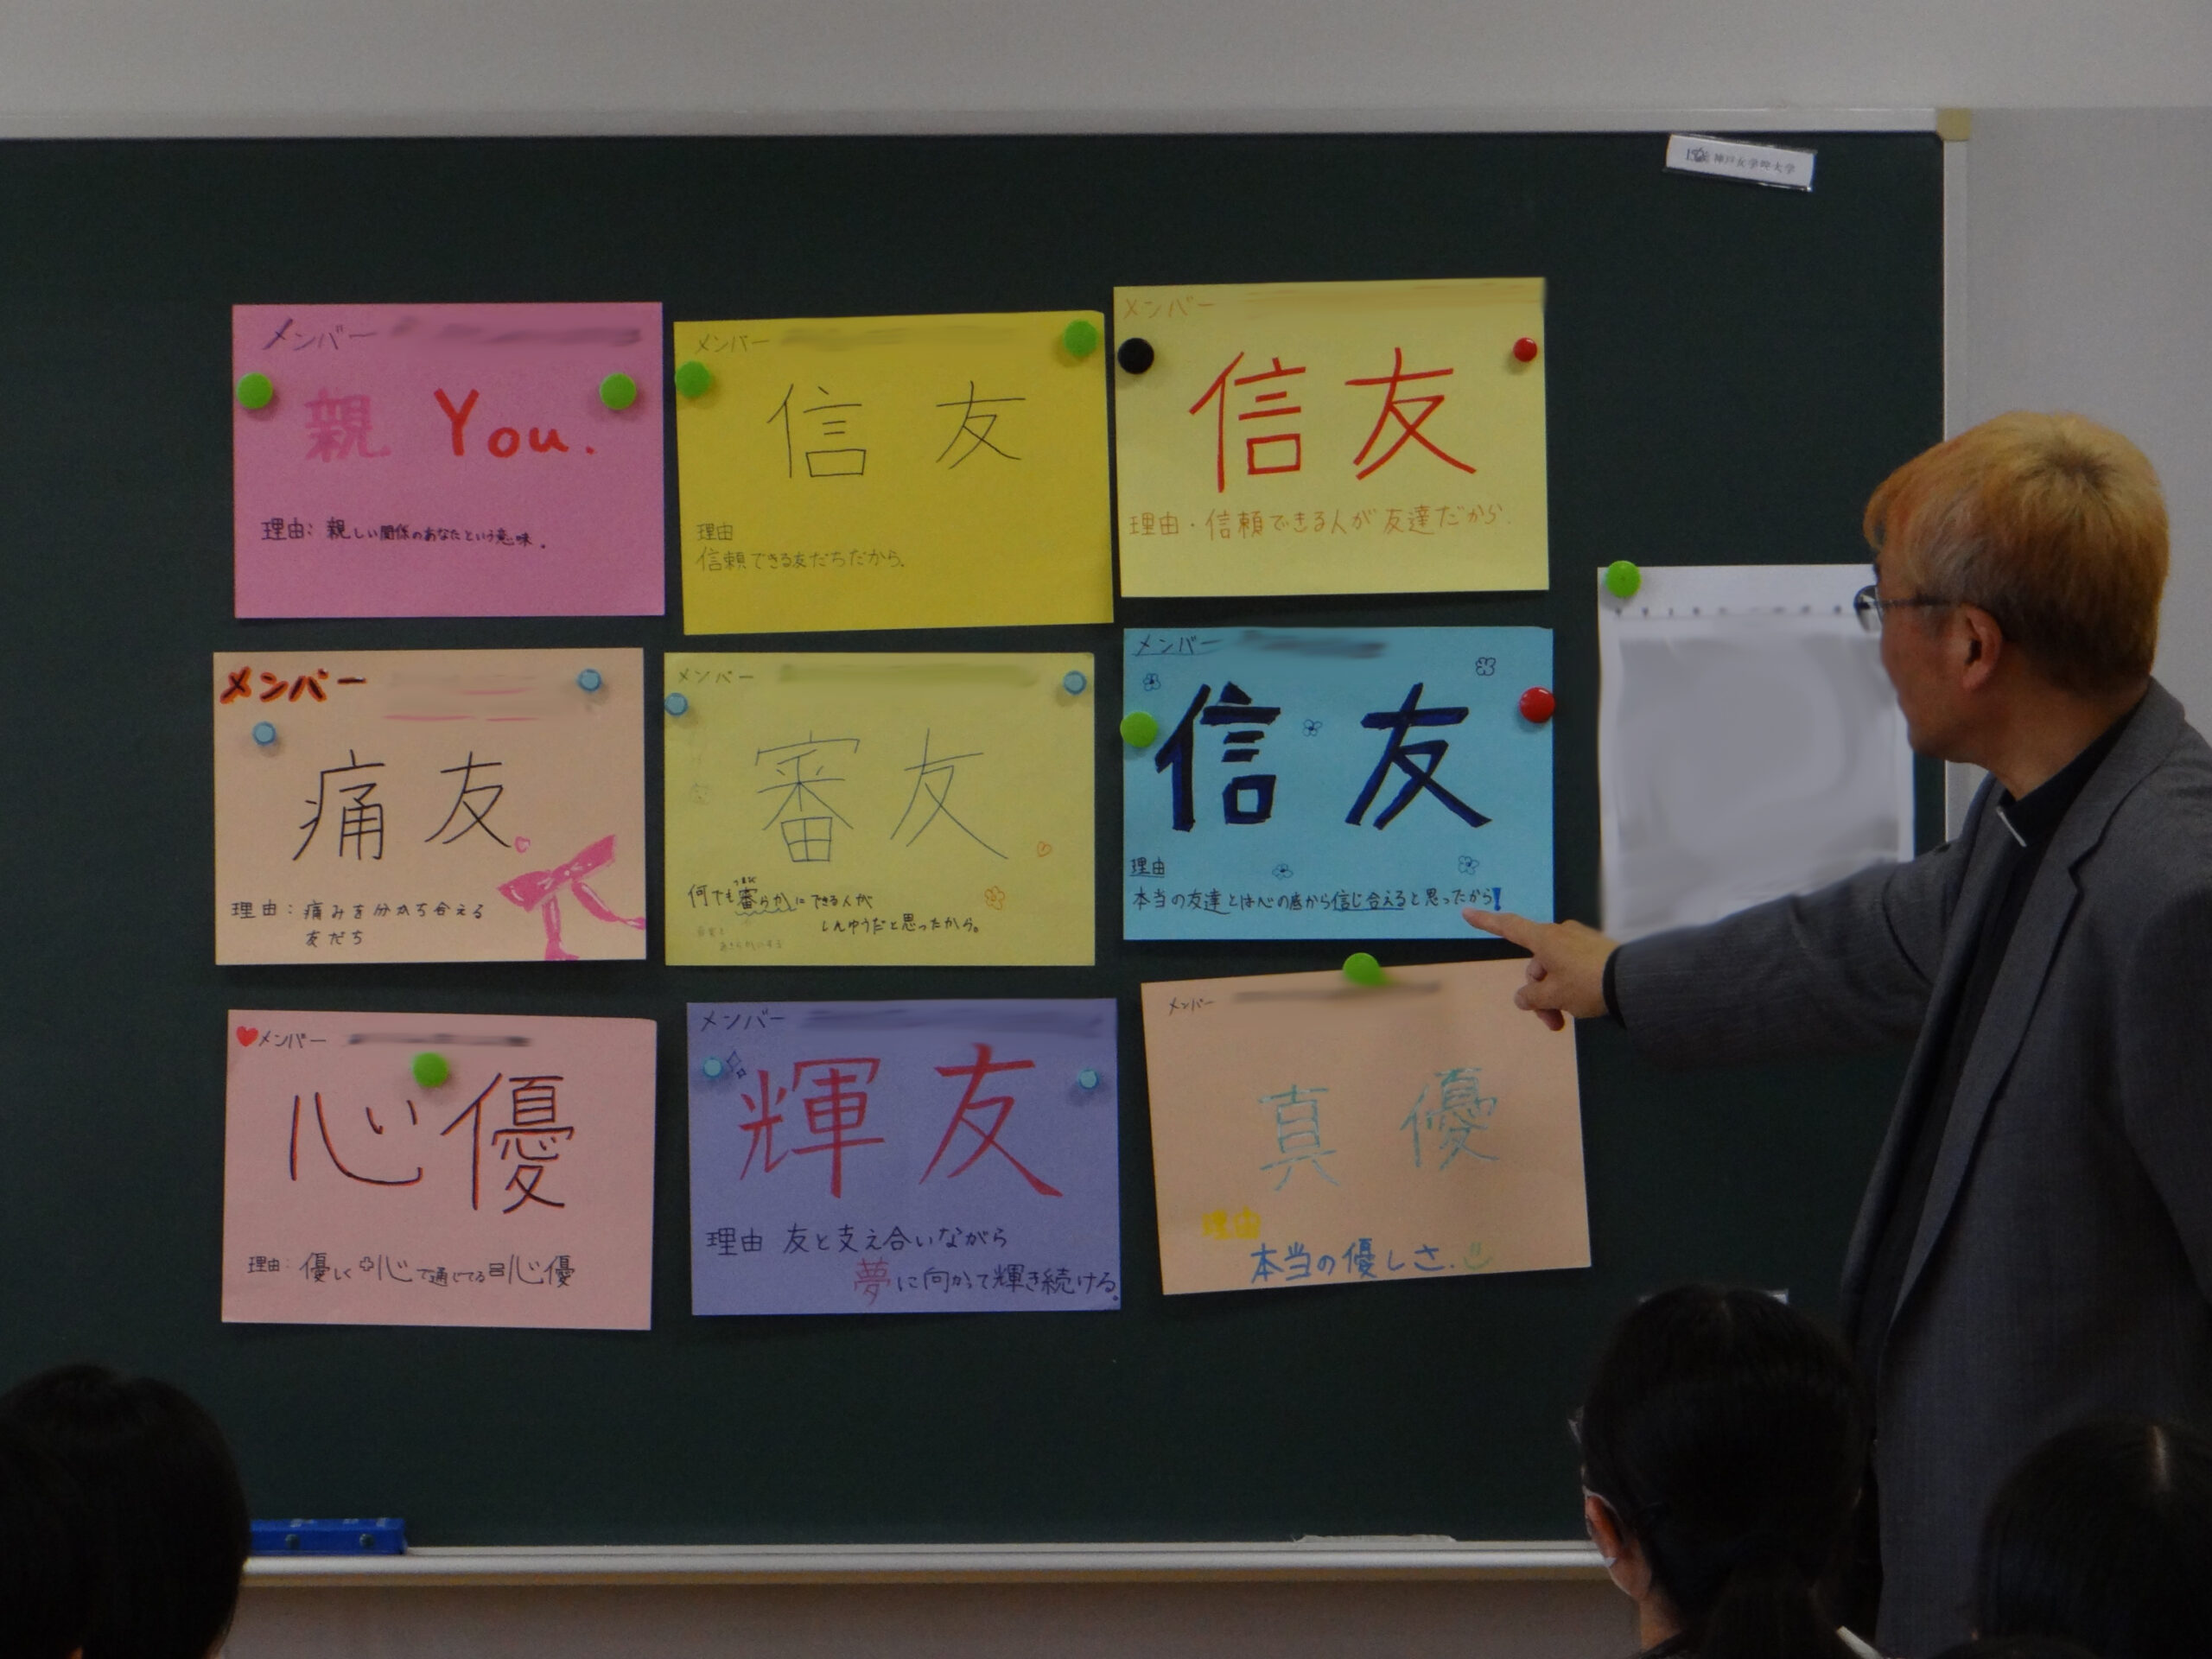 神戸女学院大学
メンバー
親 You.
理由: 親しい関係のあなたという意味.
メンバー
信友
理由
信頼できる友だちだから.
メンバー
信友
理由・信頼できる人が友達だから.
メンバー
痛友
理由: 痛みを分かち合える
友だち
メンバー
審友
何でも審らかにできる人が
しんゆうだと思ったから。
メンバー
信友
理由
本当の友達とは心の底から信じ合えると思ったから!
メンバー
心優
理由: 優しく+心で通じてる=心優
メンバー
輝友
理由 友と支え合いながら
夢に向かって輝き続ける.
メンバー
真優
理由
本当の優しさ.